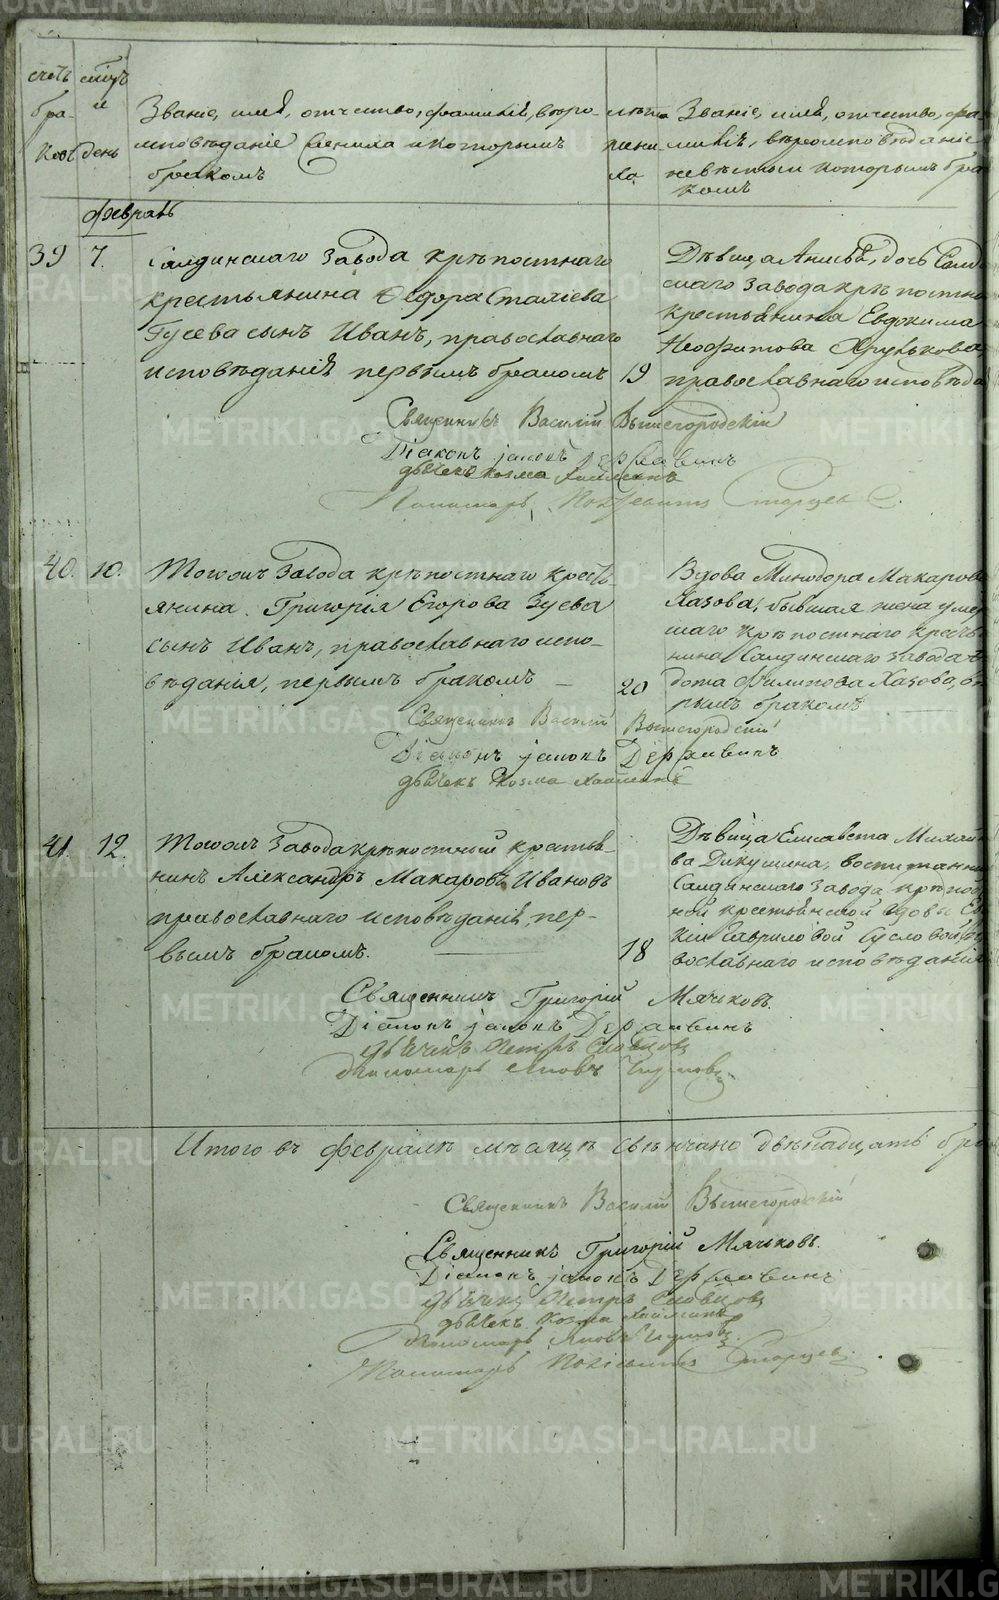 счетъ мѣсяцъ
бра- и
ковъ день
Званіе, имя, отчество, фамилія, вѣро-
исповѣданіе жениха и которымъ
бракомъ
лѣта
жени-
ха
Званіе, имя, отчество, фа
милія, вѣроисповѣданіе
невѣсты и которымъ бра
комъ
Февраль
39 7.
Салдинскаго завода крѣпостнаго
крестьянина Ѳедора
Гусева сынъ Иванъ, православнаго
исповѣданія первымъ бракомъ
19
Дѣвица Анисья, дочь Салд
скаго завода крѣпостна
крестьянина Евдокима
Неофитова
православнаго исповѣда
Священникъ Василій Вышегородскій
Діаконъ Іаковъ Державинъ
дьячекъ Козма
Пономарь Старцевъ
40. 10.
Тогожъ завода крѣпостнаго кресть-
янина Григорія Егорова Зуева
сынъ Иванъ, православнаго испо-
вѣданія, первымъ бракомъ —
20
Вдова Минодора Макарова
Хазова, бывшая жена умер
шаго крѣпостнаго кресть
нина Салдинскаго завода
дота Филипова Хазова, вт
рымъ бракомъ
Священникъ Василій Вышегородскій
Діаконъ Іаковъ Державинъ
дьячекъ Козма
41. 12.
Тогожъ завода крѣпостный крестья-
нинъ Александръ Макаровъ Ивановъ
православнаго исповѣданія, пер-
вымъ бракомъ.
18
Дѣвица Елисавета Михайл
ва Дикушина, воспитанни
Салдинскаго завода крѣпос
ной крестьянской вдовы Ев
кіи Гавриловой Сусловой,
вославнаго исповѣданія
Священникъ Григорій Мячковъ.
Діаконъ Іаковъ Державинъ
дьячекъ Петръ Словцовъ
Пономарь Яковъ
Итого въ февралѣ мѣсяцѣ свѣнчано двѣнадцать бра
Священникъ Василій Вышегородскій
Священникъ Григорій Мячковъ.
Діаконъ Іаковъ Державинъ
дьячекъ Петръ Словцовъ
дьячекъ Козма
Пономарь Яковъ
Пономарь Старцевъ
METRIKI.GASO-URAL.RU